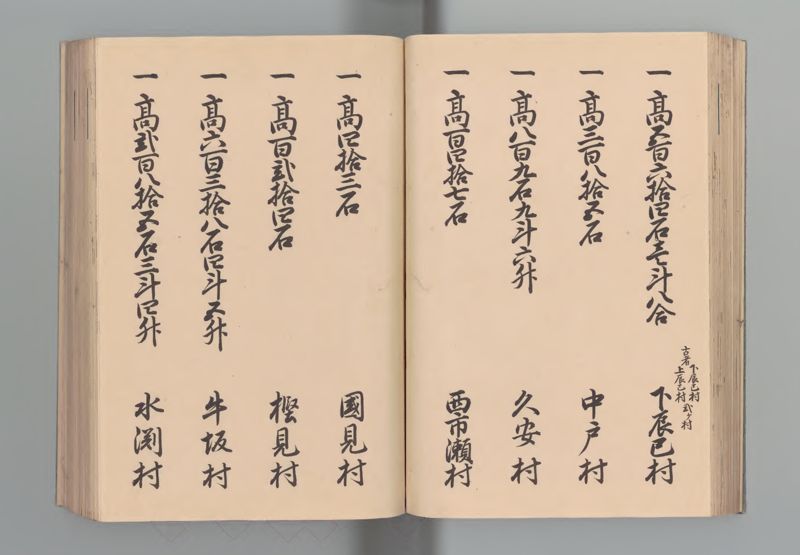 一 高五百六拾四石壱斗八合
古者下辰巳村
上辰巳村弐ヶ村
下辰巳村
一 高三百八拾五石
中戸村
一 高八百九石九斗六升
久安村
一 高百四拾七石
西市瀬村
一 高四拾三石
國見村
一 高百弐拾四石
樫見村
一 高六百三拾八石四斗五升
牛坂村
一 高弐百八拾五石三斗四升
水渕村